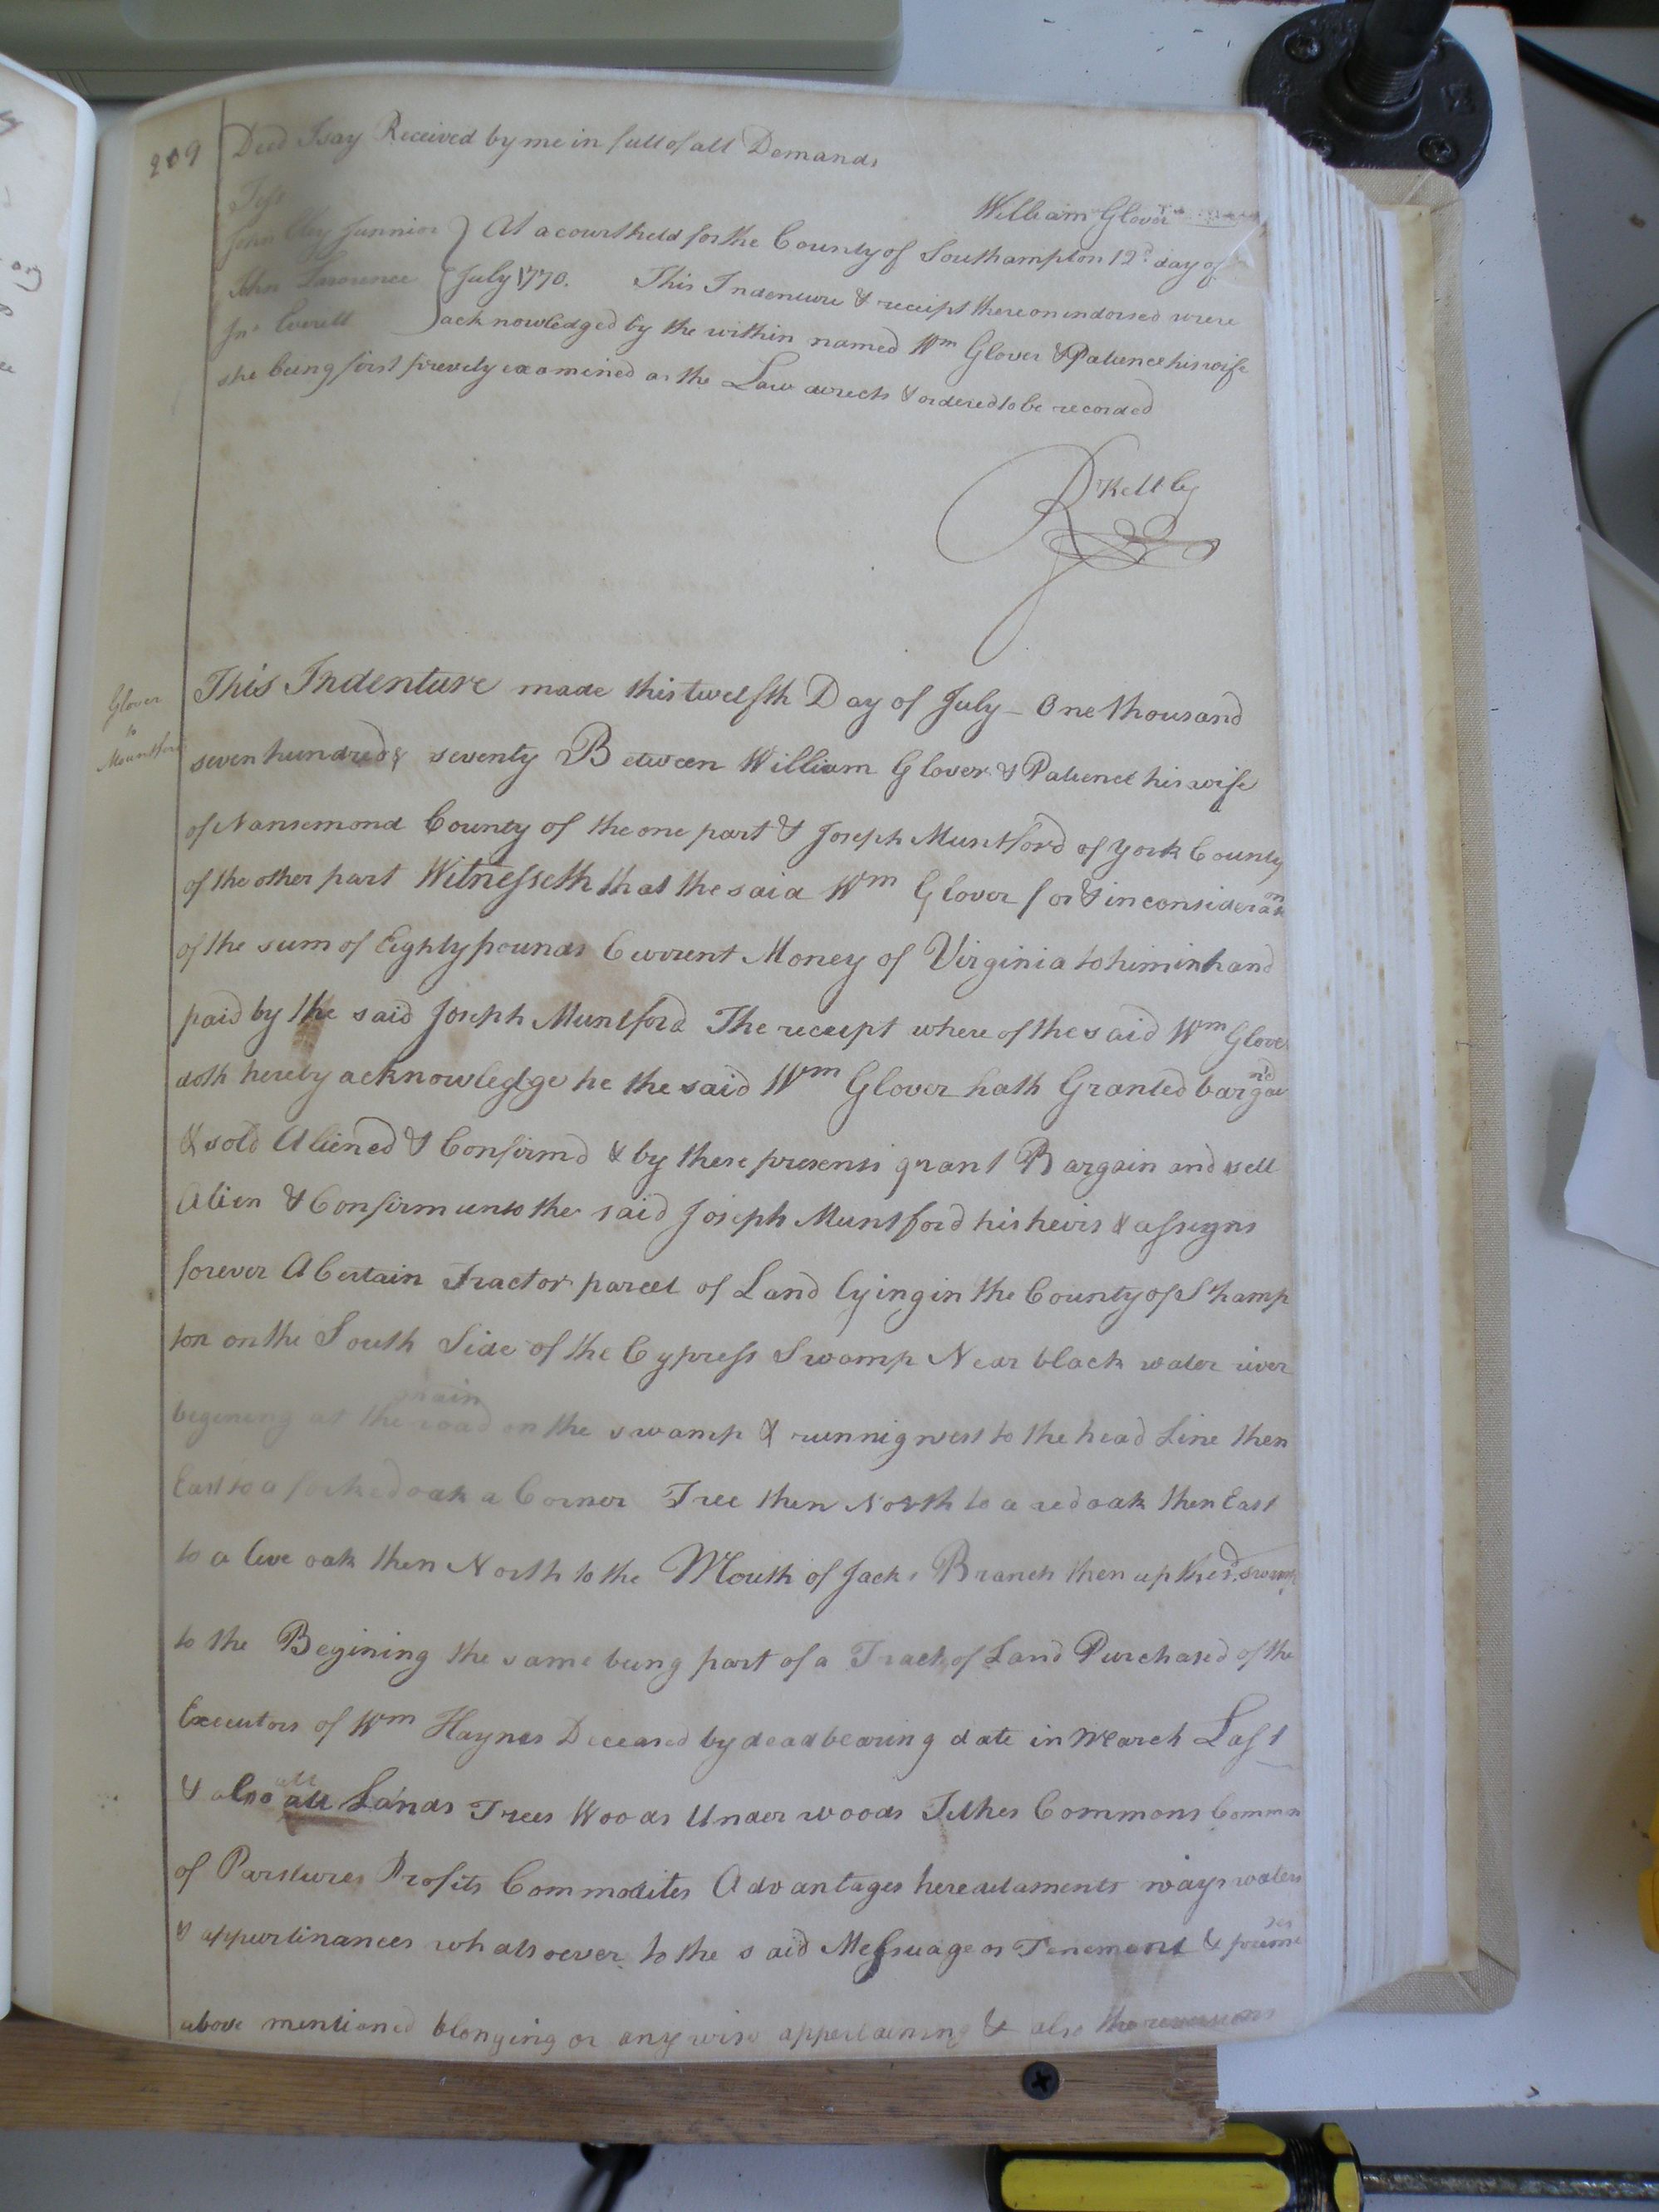 209
Deed I say Received by me in full of all Demands
William Glover
Test
John Clay Junnior } At a court held for the County of Southampton 12th day of
John Lawrence { July 1770. This Indenture & receipt thereon indorsed were
Jno Everett } acknowledged by the within named Wm Glover & Patience his wife
she being first prively examined as the Law directs & ordered to be recorded
R Kellby
Glover
to
Mountford
This Indenture made this twelfth Day of July One thousand
seven hundred & seventy Between William Glover & Patience his wife
of Nansemond County of the one part & Joseph Muntford of York County
of the other part Witnesseth that the said Wm Glover for & in consideration
of the sum of Eighty pounds Current Money of Virginia to him in hand
paid by the said Joseph Muntford The receipt where of the said Wm Glove
doth hereby acknowledge he the said Wm Glover hath Granted bargain'd
& sold Aliened & Confirmd & by these presents grant Bargain and sell
Alien & Confirm unto the said Joseph Muntford his heirs & assigns
forever A Certain Tract or parcel of Land lying in the County of Sthamp
ton on the South Side of the Cypress Swamp Near black water river
begining at the main road on the swamp & runnig west to the head Line then
East to a forked oak a Corner Tree then North to a red oak then East
to a live oak then North to the Mouth of Jacks Branch then up the sd. swamp
to the Begining the same being part of a Tract of Land Purchased of the
Executors of Wm Haynes Deceased by deed bearing date in March Last
& also all all Lands Trees Woods Under woods Tithes Commons Common
of Parstures Profits Commodites Advantages hereditaments ways waters
& appurtinances whatsoever to the said Messuage or Tenement & premises
above mentioned blonging or any wise appertaining & also the reversions